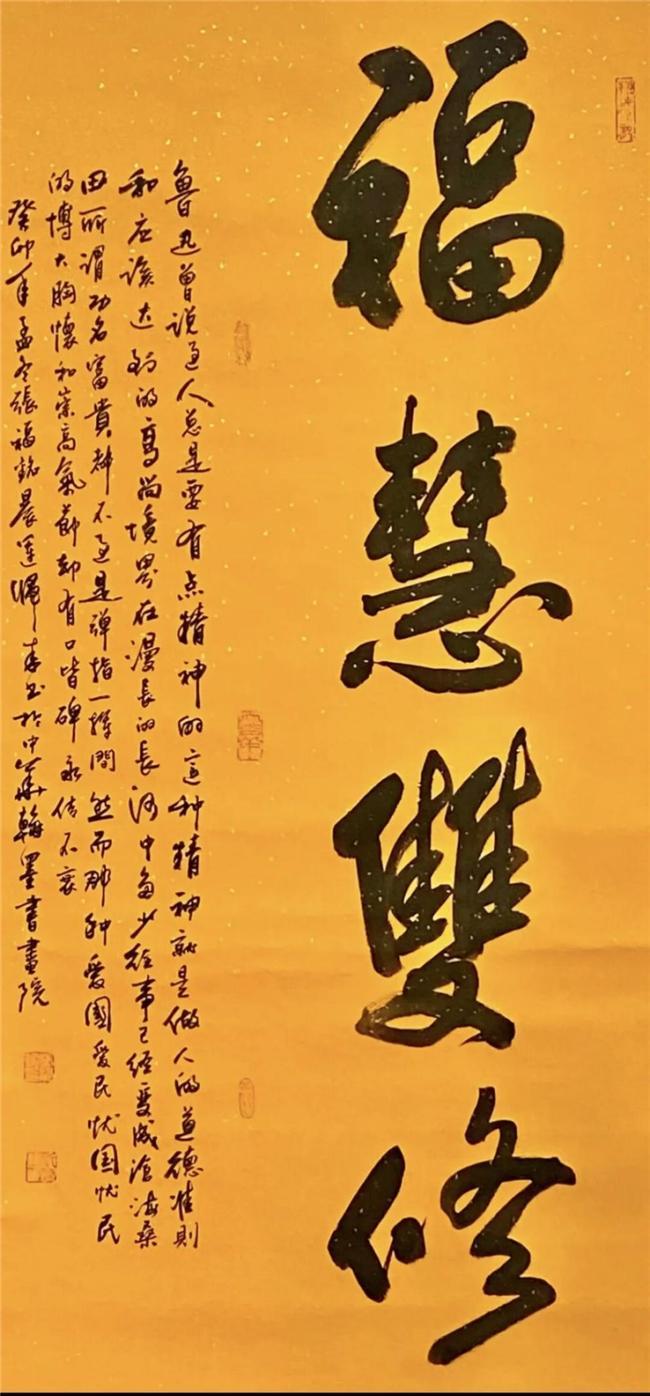 福慧雙修
魯迅曾说过人总是要有点精神的這种精神就是做人的道德准則
和应该达到的高尚境界在漫長的長河中多少往事已经变成滄海桑
田所谓功名富貴都不过是弹指一揮間然而那种愛國愛民忧国忧民
的博大胸懷和崇高氣節却有口皆碑永传不衰
癸卯年孟冬張福銘晨運归来书於中華翰墨書畫院